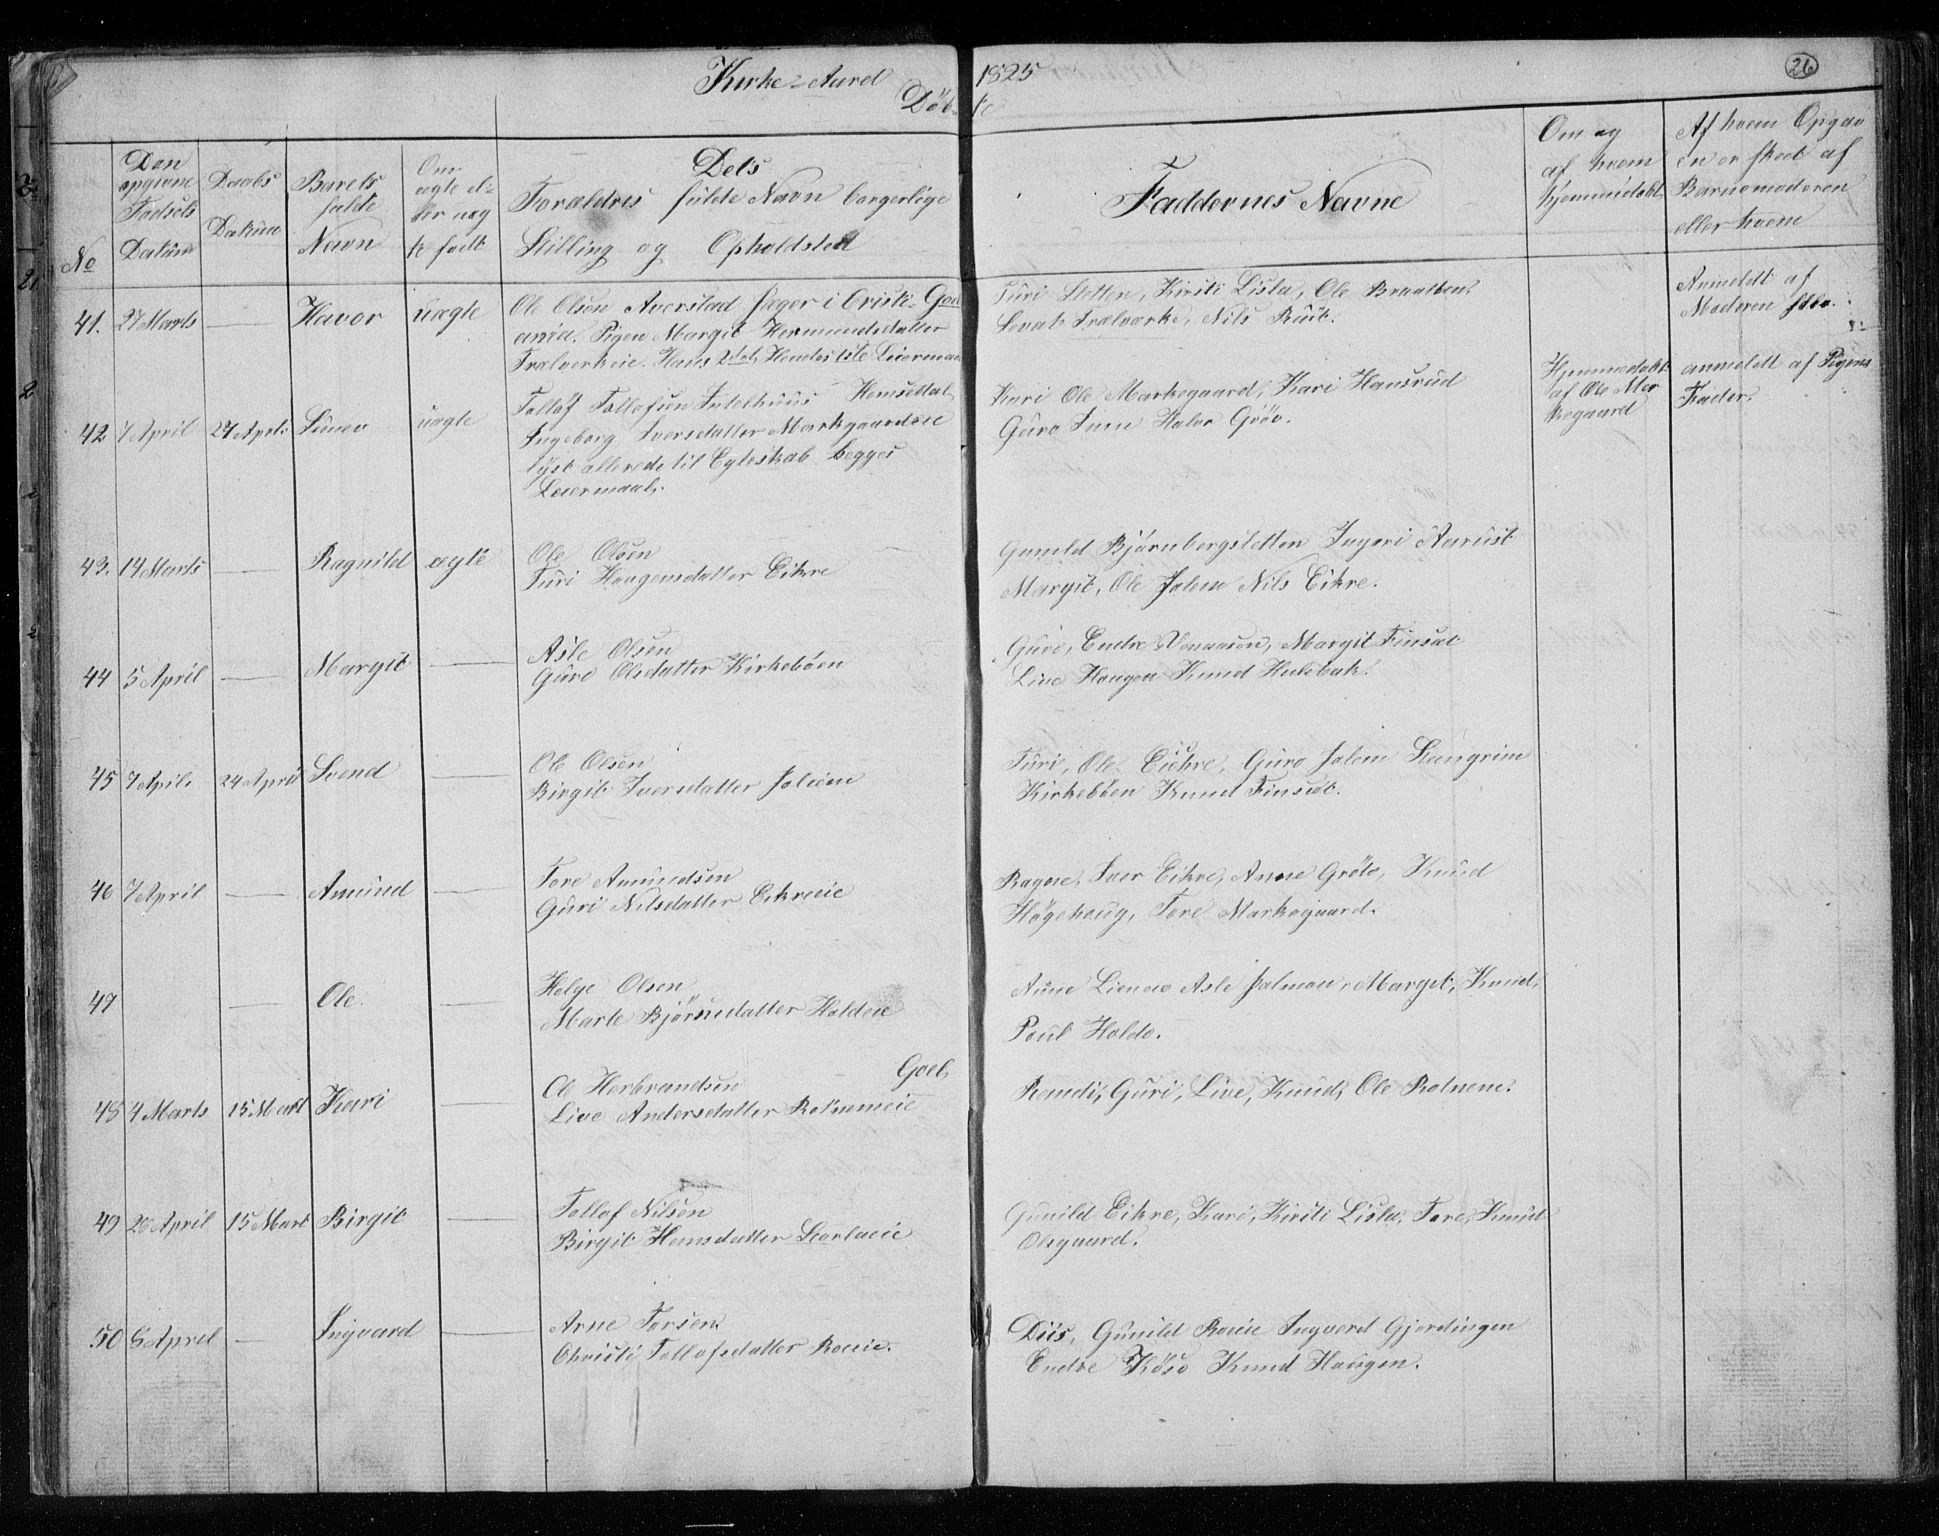 Kirke-Aaret 1825
26
Döbte
No
Den opgivne Födsels Datum
Daabs Datum
Barets fulde Navn
Om ægte eller uægte födt
Dets
Forældres fulde Navn borgerlige
Stilling og Opholdsted
Faddernes Navne
Om og af hvem hjemmedöbt
Af hvem Opgav
en er skeet af
Barnemoderen
eller hvem
41. 27 Marts — Havor uægte
Ole Olsen Averstad Jæger i Christi-
ania. Pigen Margit Hermundsdatter
Trælverkeie. Hans 2det, Hendes 1ste Leiermaal
Goel
Turi Sletten, Kirsti Lisla, Ole Braatten
Sevat Trælverke, Nils Rust.
Anmeldt af
Moderen selv.
42 7 April 24 April uægte
Tollof Tollofsen Hemsedal
Ingeborg Iversdatter Markegaardseie
lyst allerede til Egteskab begges
Leiermaal.
Kari Ole Markegaard, Kari Hausrud
Guro Halvor Gröö.
Hjemmedöbt
af Ole Mar
kegaard
anmeldt af Pigens
Fader.
43. 14 Marts — Ragnild ægte
Ole Olsen
Turi Haagensdatter Eikre
Gunild Björnbergsletten Ingeri
Margit, Ole Jalem Nils Eikre.
44 5 April — Margit —
Asle Olsen
Guro Olsdatter Kirkeböen
Guro, Endre Venaasen, Margit Finset
Live Haugen Knud Hulebak.
45 7 April 24 April Svend —
Ole Olsen
Birgit Iversdatter Jaleim
Turi, Ole Eikre, Guro Jalem Stengrim
Kirkeböen Knud Finset.
46 7 April — Amund —
Tore Amundsen
Guri Nilsdatter Eikreeie
Ragne, Iver Eikre, Anne Gröto, Knud
Högehoug, Tore Markegaard.
47 — Ole —
Helge Olsen
Marte Björnsdatter Holdeie
Anne Asle Margit, Knud,
Poul Holde.
48 4 Marts 15 Mart Kari —
Ole Herbrandsen
Live Andersdatter Rotnemeie
Goel
Randi, Guri, Live, Knud, Ole Rotnem.
49 20 April 15 Mart Birgit —
Tollof Nilsen
Birgit Hansdatter
Gunild Eikre, Kari, Kirsti Lisla, Tore, Knud
Olsgaard.
50 6 April — Ingvard —
Arne Torsen
Christi Tollofsdatter Roeie.
Diis, Gunild Roeie Ingverd Gjerdingen
Endre Knud Haugen.